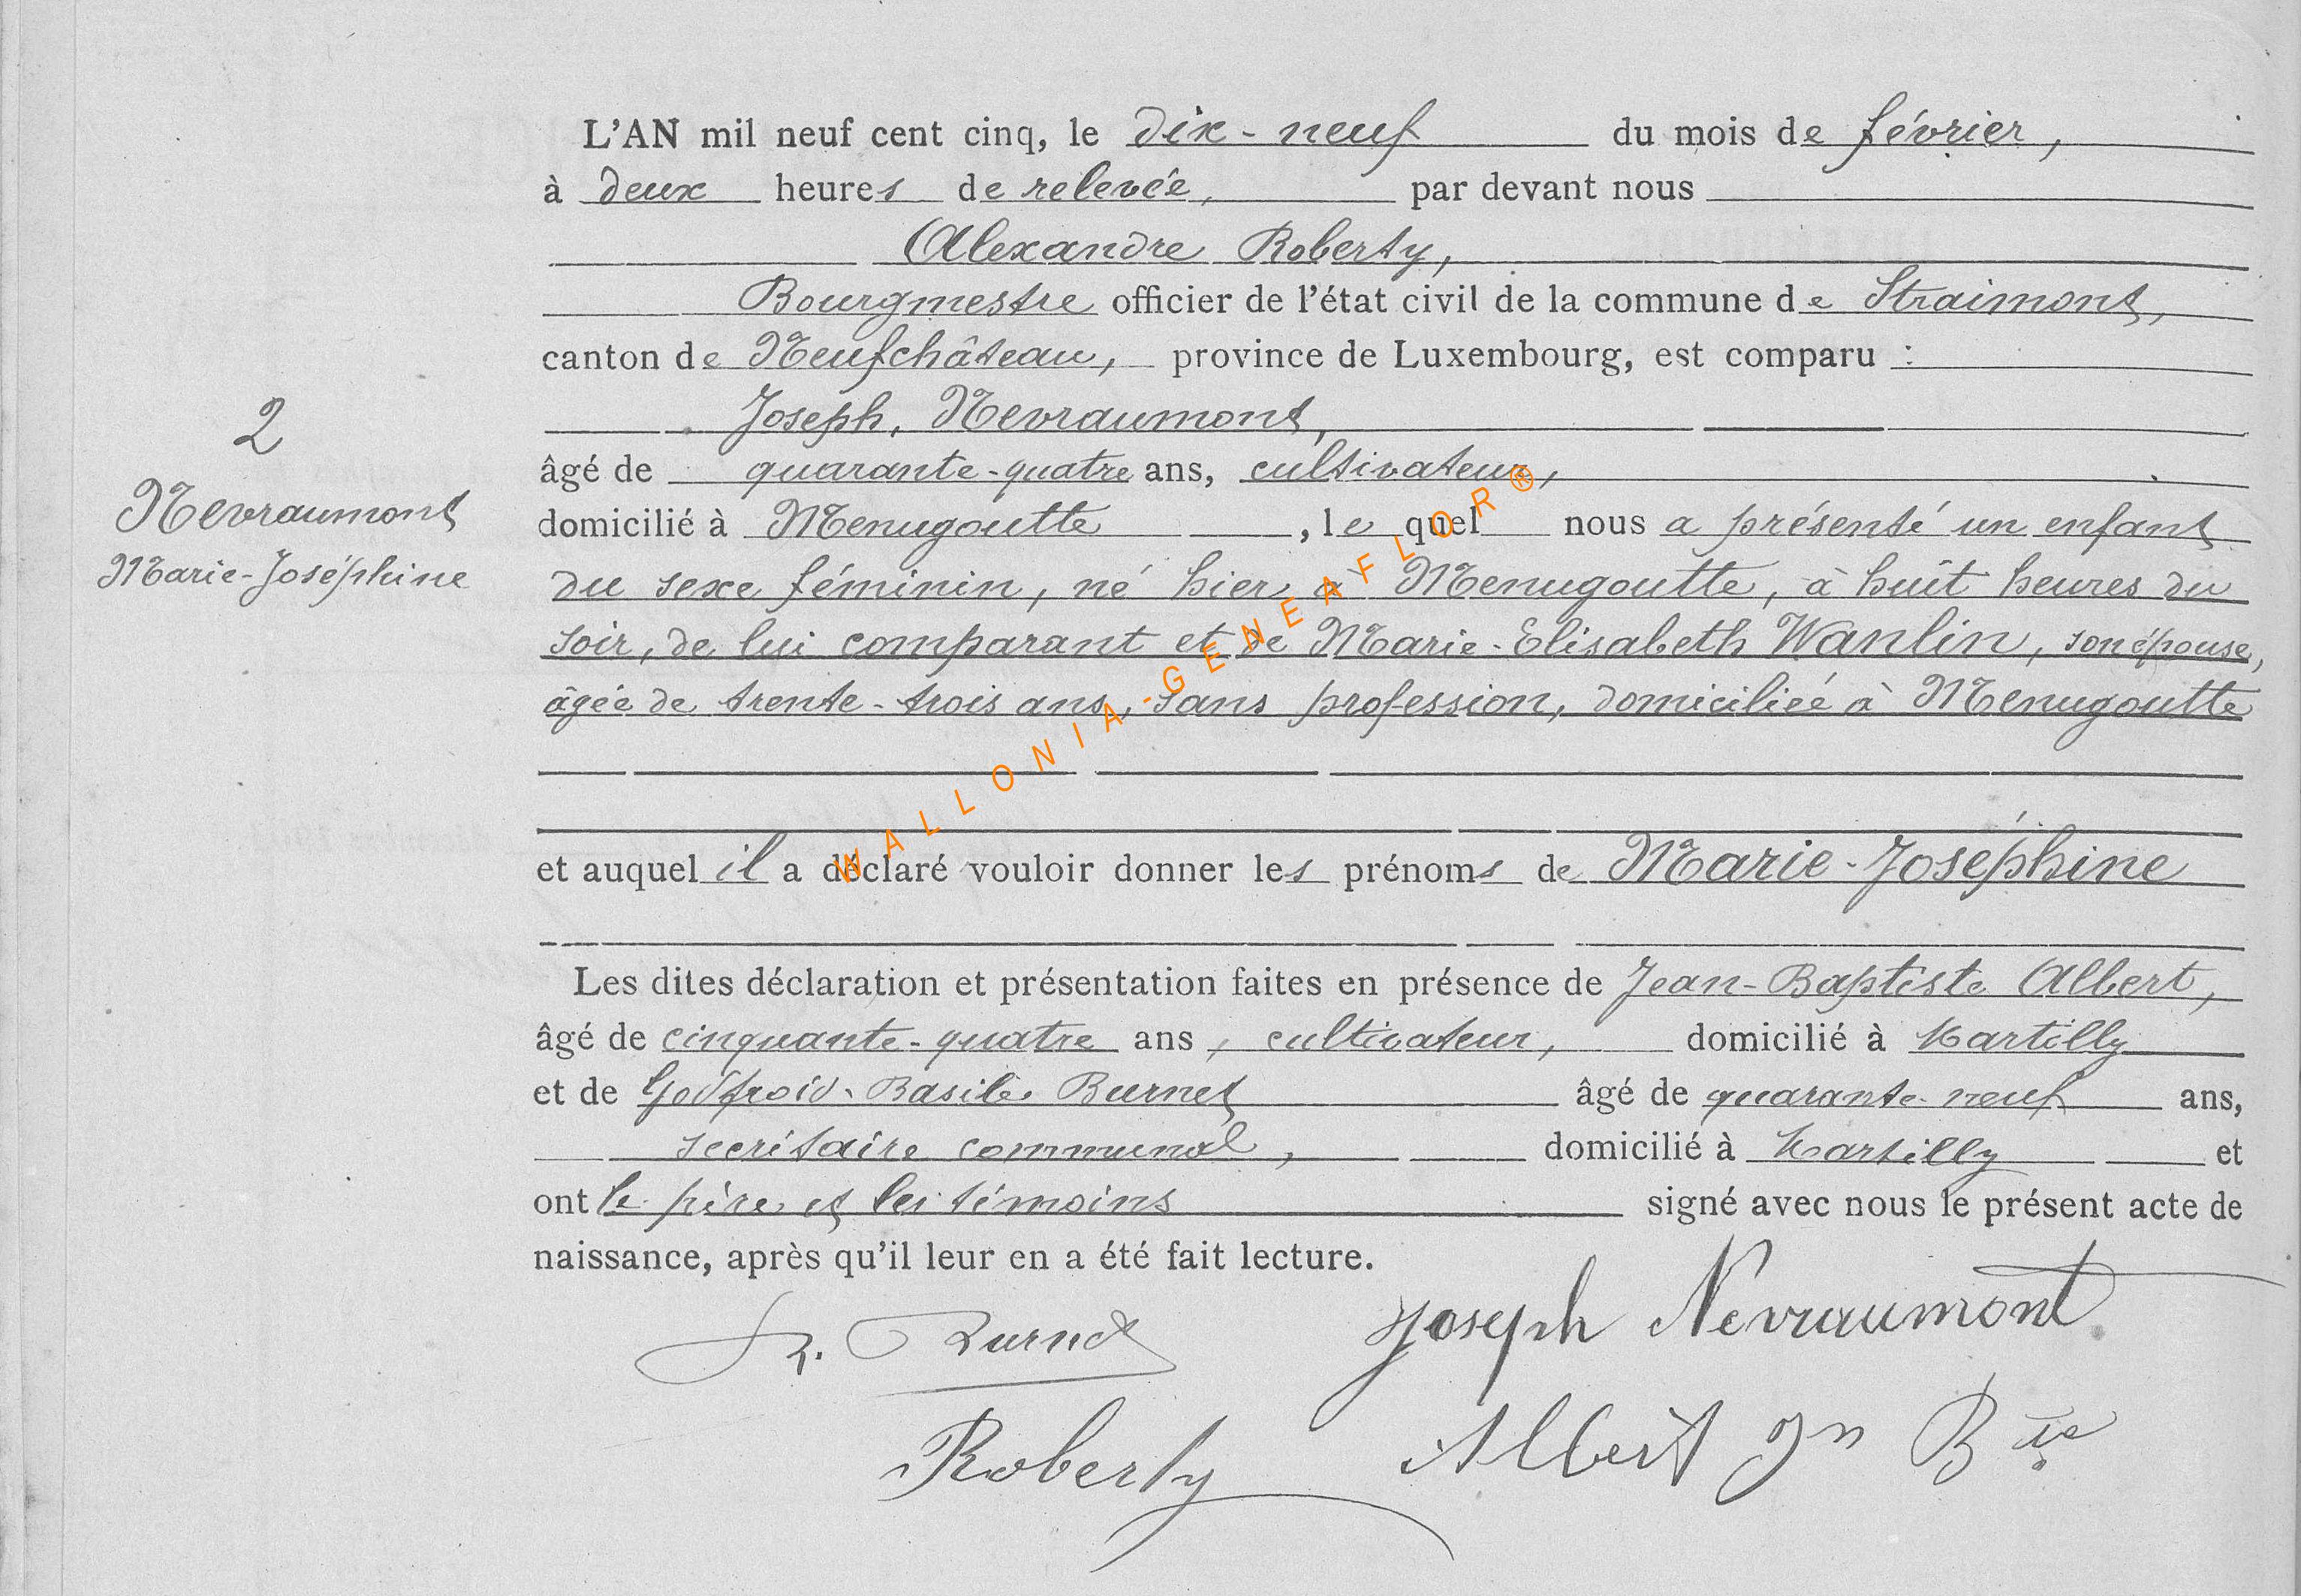 L'AN mil neuf cent cinq, le dix-neuf du mois de février,
à deux heures de relevée, par devant nous
Alexandre Roberty,
Bourgmestre officier de l'état civil de la commune de Straimont,
canton de Neufchâteau, province de Luxembourg, est comparu :
Joseph, Nevraumont,
âgé de quarante-quatre ans, cultivateur,
domicilié à Menugoutte, le quel nous a présenté un enfant
du sexe féminin, né hier à Menugoutte, à huit heures du
soir, de lui comparant et de Marie-Elisabeth Wanlin, son épouse,
âgée de trente-trois ans, sans profession, domiciliée à Menugoutte
et auquel il a déclaré vouloir donner les prénoms de Marie-Joséphine
Les dites déclaration et présentation faites en présence de Jean-Baptiste Albert,
âgé de cinquante-quatre ans, cultivateur, domicilié à Martilly
et de Godfroid-Basile Burnet âgé de quarante-neuf ans,
secrétaire communal, domicilié à Martilly et
ont le père et les témoins signé avec nous le présent acte de
naissance, après qu'il leur en a été fait lecture.
2
Nevraumont
Marie-Joséphine
Burnet
Joseph Nevraumont
Roberty
Albert Jn Bte
WALLONIA-GENEAFLOR®